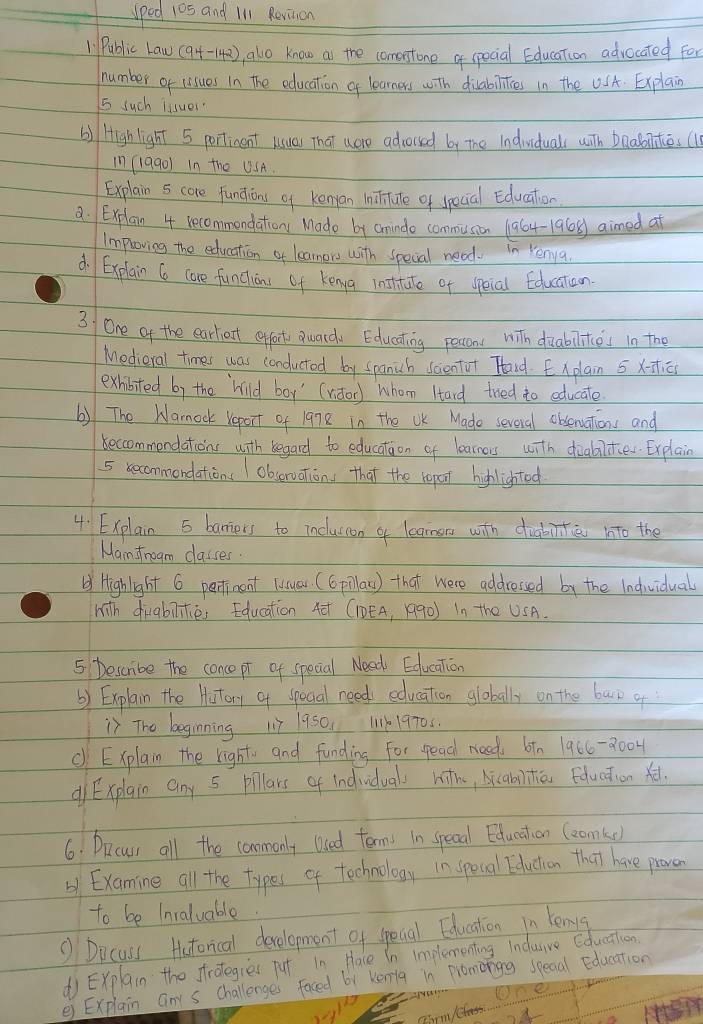 Sped 105 and 111 Revision
1. Public Law (94-142), also know as the cornerstone of special Education advocated for
number of issues in the education of learners with disabilities in the USA. Explain
5 such issues.
b) Highlight 5 pertinent issues that were adressed by the Individuals with Disabilities (I
in (1990) in the USA.
Explain 5 core functions of kenyan Institute of special Education.
2. Explain 4 recommendations Made by ominde commission (1964-1968) aimed at
Improving the education of learners with special needs in Kenya.
d. Explain 6 core functions of Kenya Institute of special Education.
3. One of the earliest efforts awards Educating persons with disabilities in the
Medieval times was conducted by spanish scientist Itard. Explain 5 X-stics
exhibited by the 'wild boy' (victor) whom Itard tried to educate.
b) The Warnock report of 1978 in the UK Made several observations and
Reccommendations with regard to education of learners with disabilities. Explain
5 recommendations / observations that the report highlighted.
4. Explain 5 barriers to inclusion of learners with disabilities into the
Mainstream classes.
b) Highlight 6 pertinent issues (6 pillars) that were addressed by the Individuals
with disabilities Education Act (IDEA, 1990) in the USA.
5. Describe the concept of special Needs Education
b) Explain the History of special needs education globally on the basis of :
i) The beginning ii) 1950s iii) 1970s.
c) Explain the rights and funding for special needs btn 1966-2004
d) Explain any 5 pillars of Individuals with, Disabilities Education Act.
6. Discuss all the commonly Used terms in special Education (20mks)
b) Examine all the types of technology in special Eduction that have proven
to be Invaluable.
c) Discuss Historical development of special Education in kenya
d) Explain the strategies put in place in implementing Inclusive Education.
e) Explain any 5 challenges faced by kenya in promoting special Education
One
Form/Class